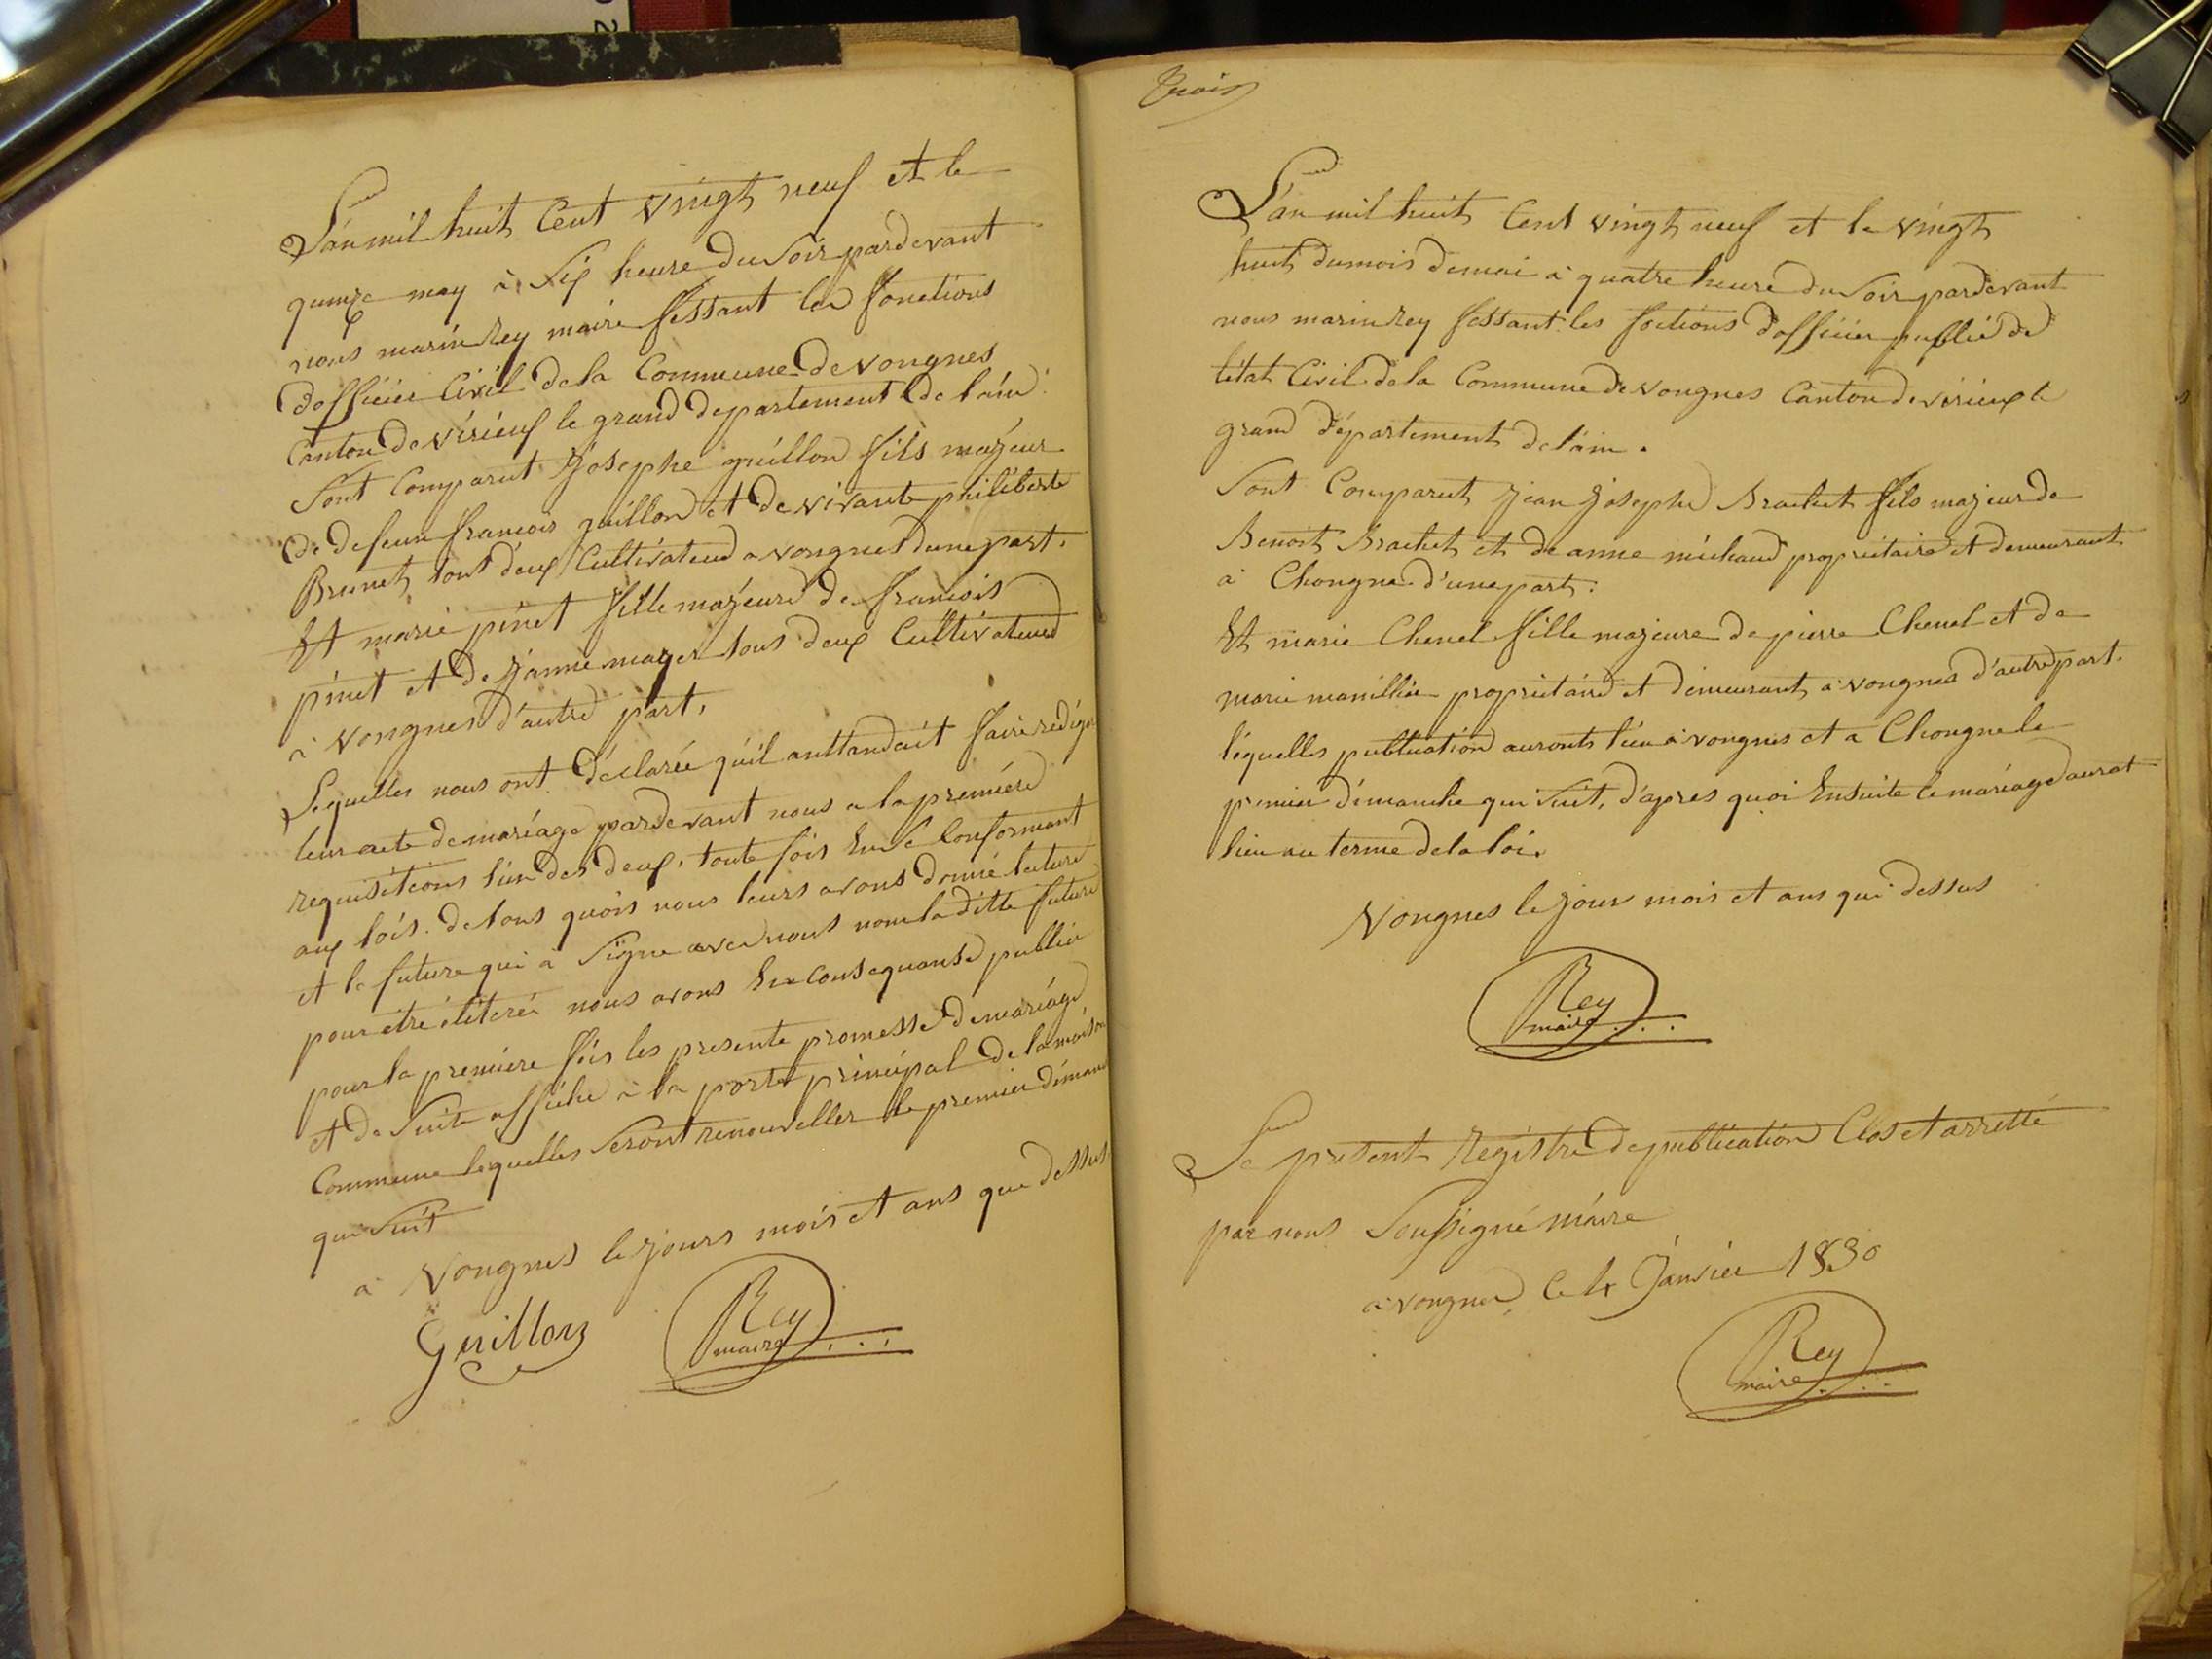 L'an mil huit Cent vingt neuf et le
quinze may à Six heure du Soir pardevant
nous marin Rey maire fessant les fonctions
d'officier Civil de la Commune de vongnes
Canton de virieux le grand departement de l'ain.
Sont Comparut Josephe guillon fils majeur
de defeun francois guillon et de vivante philiberte
Brunet tout deux Cultivateurd a vongnes d'une part.
Et marie pinet fille majeure de francois
pinet et de Janne mayer tous deux Cultivateurd
à vongnes d'autre part.
Lequelles nous ont déclarée qu'il anttandait faire rediger
leur acte de mariage pardevant nous a la première
requisitions l'un des deux. toute fois En Se Conformant
aux lois. de tous quois nous leurs avons donné lecture
et le future qui à Signe avec nous non la ditte future
pour etre élitéré nous avons En Consequanse publier
pour la première fois les presente promesse de mariage
et de Suite affiché à la porte principal de la maison
Commune lequelles Seront renouveller le premier dimanche
qui Suit
à Vongnes le jours mois et ans que dessus.
Guillon Rey
maire
2
trois
L'an mil huit Cent vingt neuf et le vingt
huit du mois de mai à quatre heure du Soir pardevant
nous marin Rey fessant les foctions d'officier public de
l'état Civil de la Commune de vongnes Canton de virieux le
grand département de l'ain.
Sont Comparut Jean Josephe Brachet fils majeur de
Benoit Brachet et de anne michaud propriétaire et demeurant
à Chongne d'une part.
Et marie Chenel fille majeure de pierre Chenel et de
marie propriétaire et demeurant à vongnes d'autre part.
léquelles publication auronts lieu à vongnes et a Chongne le
premier dimanche qui Suit, d'apres quoi Ensuite le mariage aurat
lieu au terme de la loi.
Vongnes le jour mois et ans qui dessus
Rey
maire
Le présent Registre de publication Clos et arretté
par nous Soussigné máire
a vongnes, le 4 Janvier 1830
Rey
maire